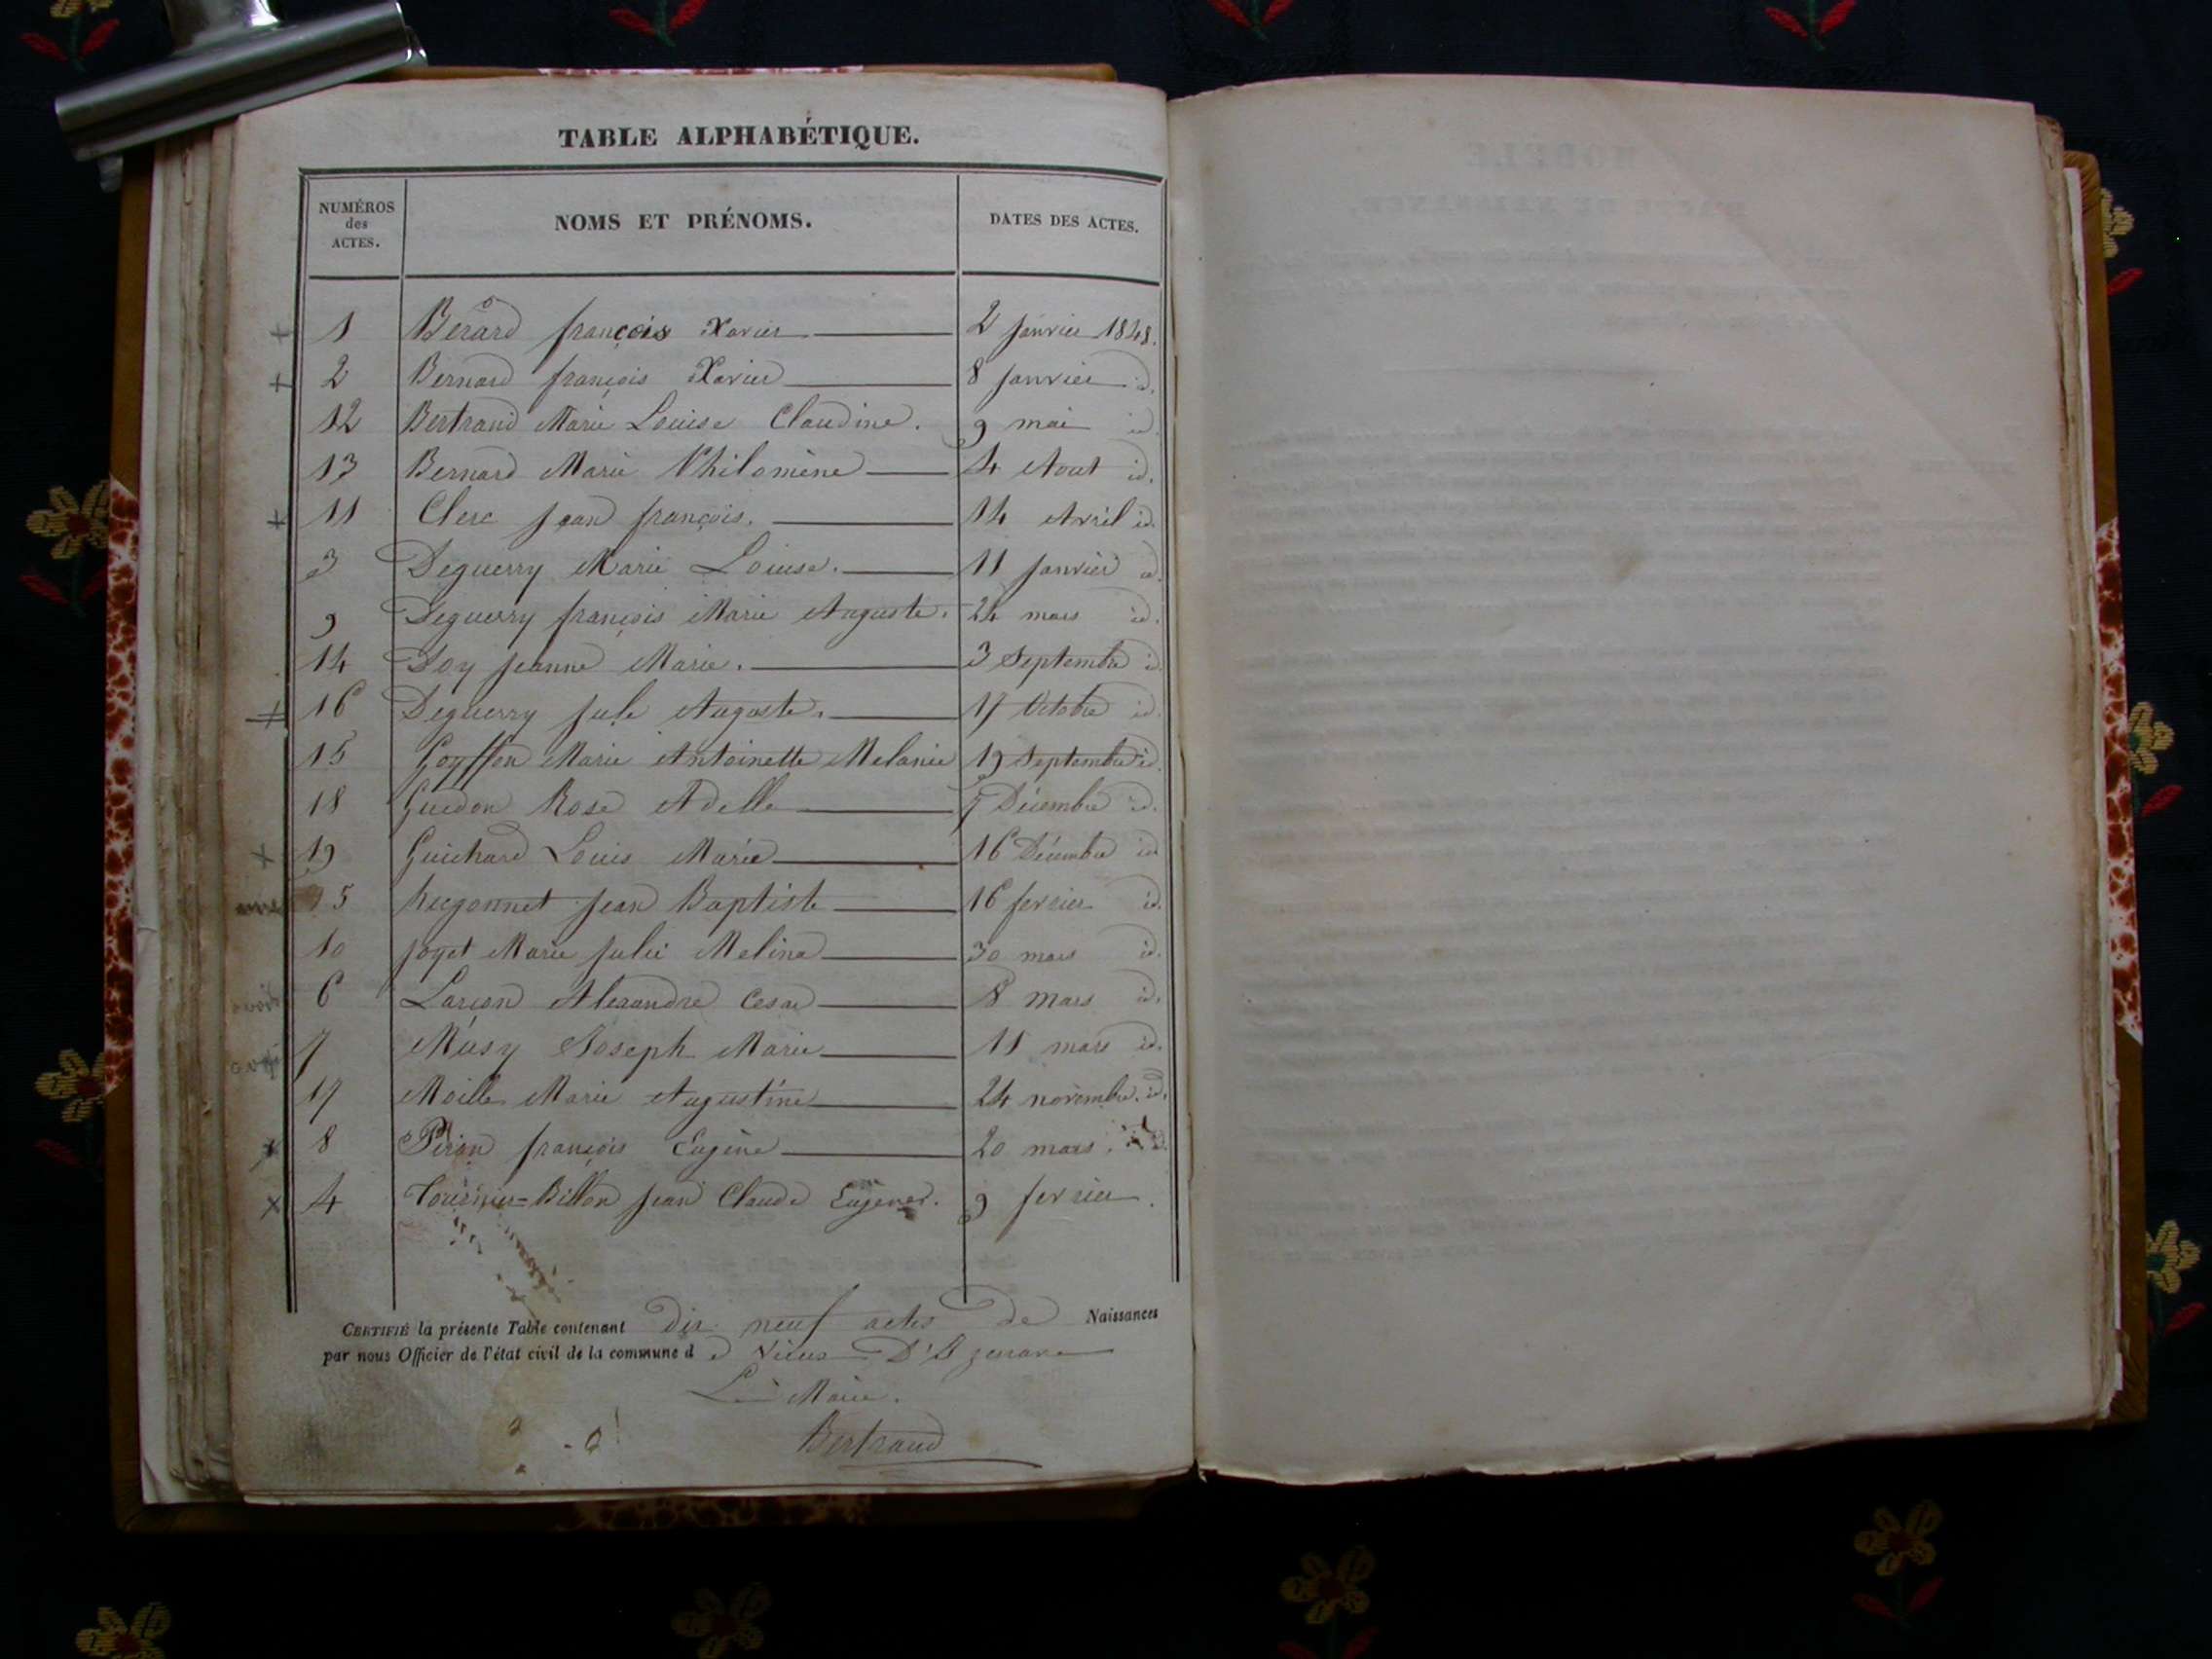 TABLE ALPHABÉTIQUE.
NUMÉROS des ACTES. NOMS ET PRÉNOMS. DATES DES ACTES.
1 Bérard françois Xavier 2 janvier 1848.
2 Bernard françois Xavier 8 janvier id.
12 Bertrand Marie Louise Claudine. 9 mai id
13 Bernard Marie Philomène 4 Aout id.
11 Clerc jean françois. 14 Avril id.
3 Deguerry Marie Louise. 11 janvier id.
9 Deguerry françois Marie Auguste. 24 mars id.
14 Doy jeanne Marie. 3 Septembre id.
16 Deguerry jule Auguste. 17 Octobre id.
15 Goyffon Marie Antoinette Melanie 19 Septembre id.
18 Guedon Rose Adelle 7 Décembre id.
19 Guichard Louis Marie 16 Décembre id
5 hugonnet jean Baptiste 16 fevrier id.
10 joyet Marie julie Melina 30 mars id.
6 Larçon Alexandre Cesar 8 mars id.
7 Musy Joseph Marie 11 mars id.
17 Moille Marie Augustine 24 novembre. id.
8 Piron françois Eugène 20 mars. id.
4 Tournier=Billon jean Claude Eugene. 9 fevrier.
CERTIFIÉ la présente Table contenant dix neuf actes de Naissances
par nous Officier de l'état civil de la commune d e Vieux D'Izenave
Le Maire.
Bertrand